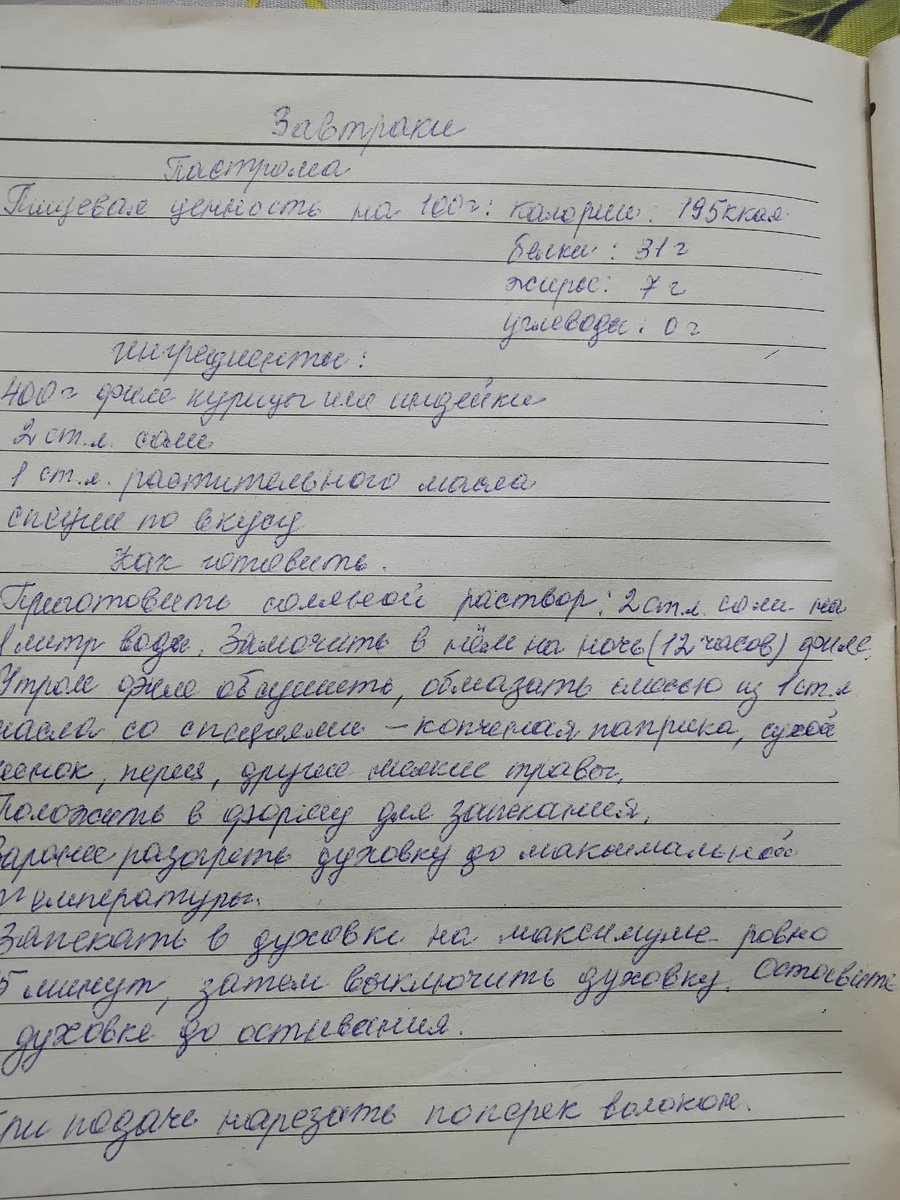 Завтраки
Пастрома
Пищевая ценность на 100г: калории: 195ккал
белки: 31 г
жиры: 7 г
углеводы: 0 г
ингредиенты:
400г филе курицы или индейки
2 ст.л. соли
1 ст.л. растительного масла
специи по вкусу
Как готовить.
Приготовить соляной раствор: 2 ст.л. соли на
1 литр воды. Замочить в нём на ночь (12 часов) филе.
Утром филе обсушить, обмазать смесью из 1 ст.л.
масла со специями – копченая паприка, сухой
чеснок, перец, другие мелкие травы.
Положить в форму для запекания.
Заранее разогреть духовку до максимальной
температуры.
Запекать в духовке на максимуме ровно
5 минут, затем выключить духовку. Оставить
духовке до остывания.
При подаче нарезать поперек волокон.